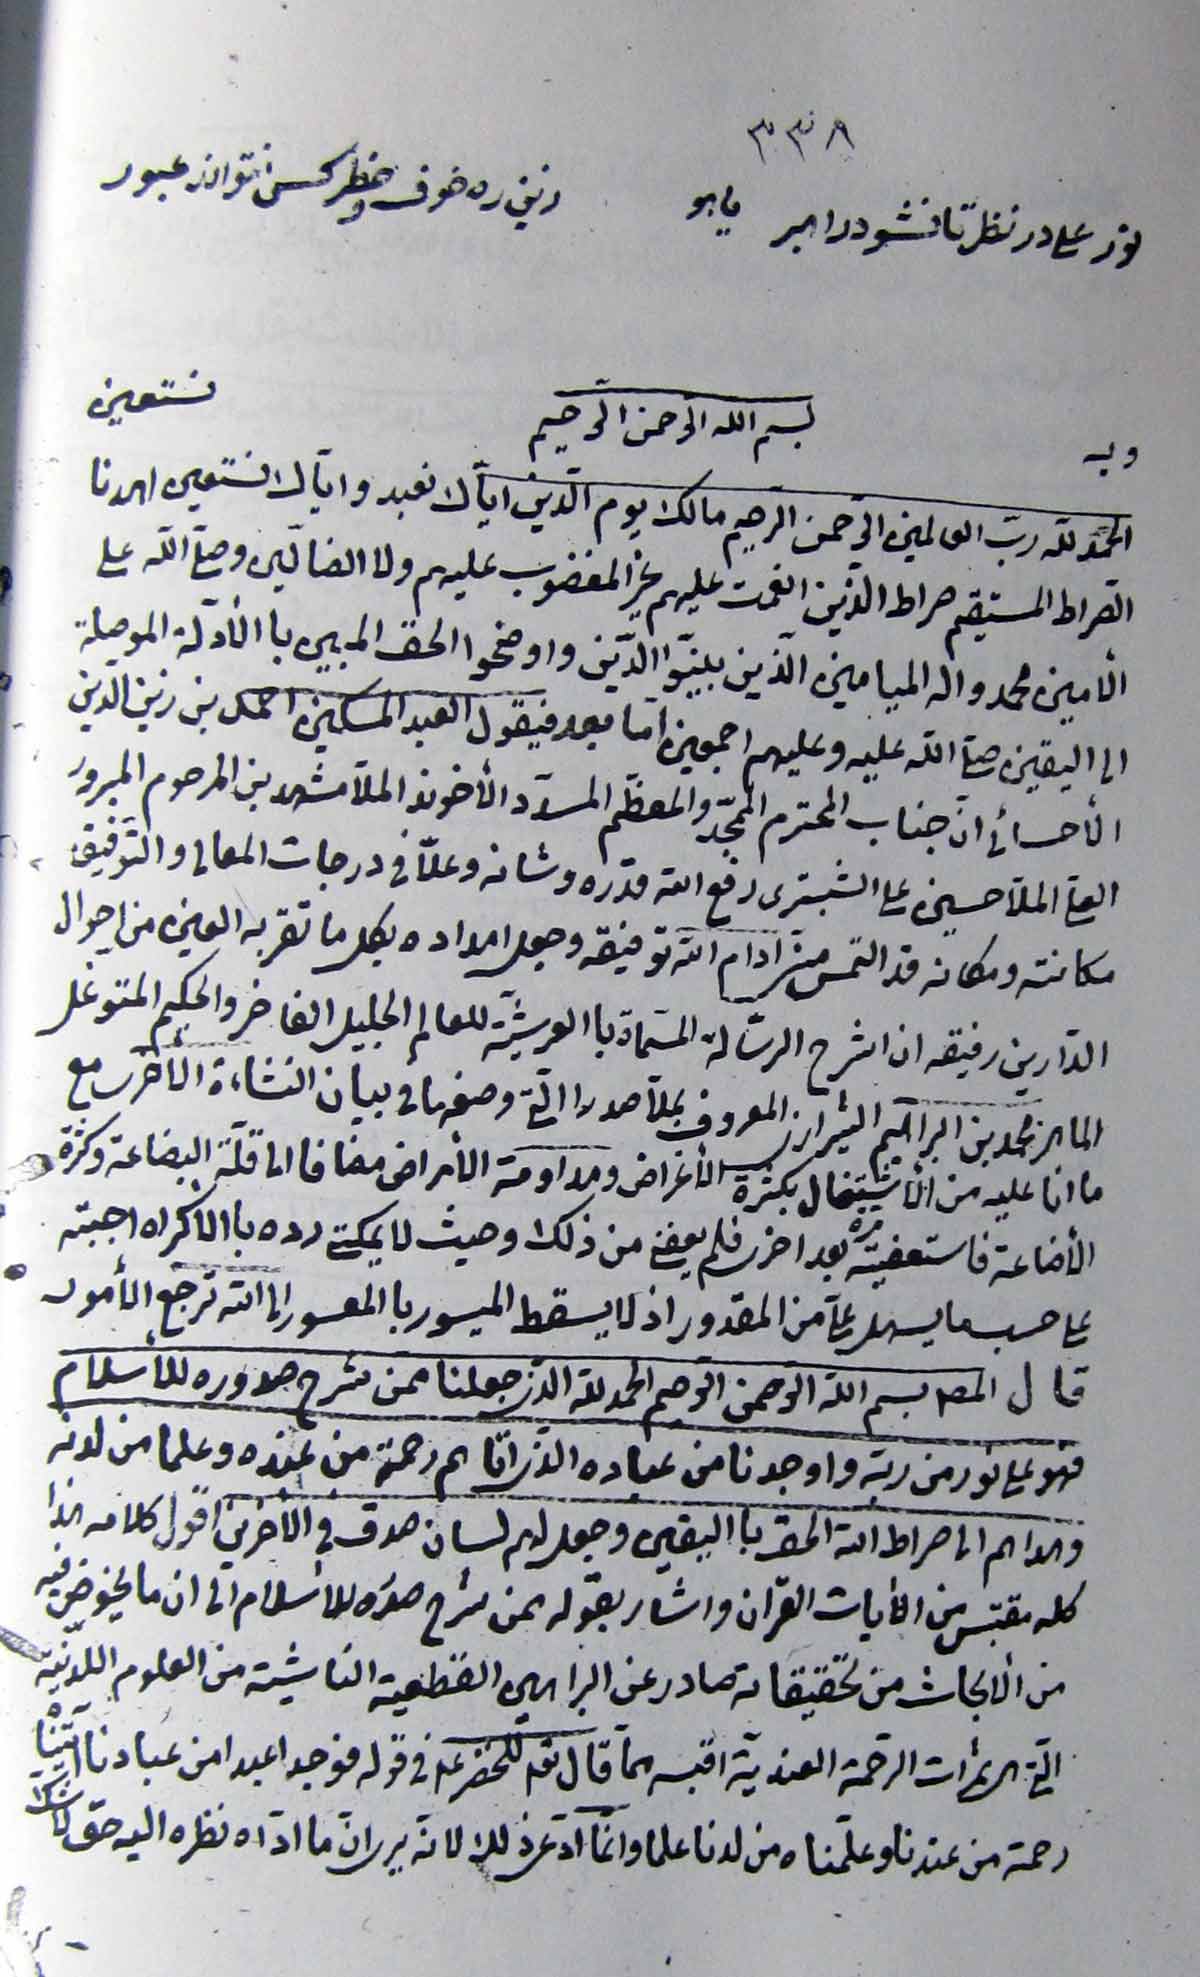 ٣٣٨
نور علی در نظر تا نشود راهبر یا هو زین ره خوف و خطر کس نتواند عبور
بسم الله الرحمن الرحيم
وبه نستعين
الحمد لله رب العالمين الرحمن الرحيم مالك يوم الدين اياك نعبد واياك نستعين اهدنا
الصراط المستقيم صراط الذين انعمت عليهم غير المغضوب عليهم ولا الضالين وصلى الله على
الامين محمد واله الميامين الذين بينوا الدين واوضحوا الحق المبين بالأدلة الموصلة
الى اليقين صلى الله عليه وعليهم اجمعين اما بعد فيقول العبد المسكين احمد بن زين الدين
الأحسائى ان جناب المحترم الممجد والمعظم المسدد الأخوند الملا مشهد بن المرحوم المبرور
العلى الملا حسين على الشبسترى رفع الله قدره وشانه وعلا فى درجات المعالى والتوفيق
مكانته ومكانه قد التمس منى ادام الله توفيقه وجعل امداده بكل ما تقر به العين من احوال
الدارين رفيقه ان اشرح الرسالة المسماة بالعرشية للعالم الجليل الفاخر والحكيم المتوغل
الماهر محمد بن ابراهيم الشيرازى المعروف بملا صدرا التى وضعها فى بيان النشاءة الأخرى مع
ما انا عليه من الأشتغال بكثرة الأغراض ومداومة الأمراض مضافا الى قلة البضاعة وكثرة
الأضاعة فاستعفيته مرة بعد اخرى فلم يعفنى من ذلك وحيث لا يمكننى رده بالاكراه اجبته
على حسب ما يسهل على من المقدور اذ لا يسقط الميسور بالمعسور الى الله ترجع الأمور
قال المصه بسم الله الرحمن الرحيم الحمد لله الذى جعلنا ممن شرح صدوره للأسلام
فهو على نور من ربه واوجدنا من عباده الذى اتاهم رحمة من عنده وعلما من لدنه
وهداهم الى صراط الله الحق باليقين وجعل لهم لسان صدق فى الأخرين اقول كلامه هذا
كله مقتبس من الأيات القرأن واشار بقوله ممن شرح صدره للأسلام الى ان ما يخوض فيه
من الأبحاث من تحقيقاته صادر عن البراهين القطعية الناشية من العلوم اللدنية
التى هى ثمرات الرحمة العندية اقتبسه مما قال تعه للخضر عه فى قوله فوجدا عبدا من عبادنا اتيناه
رحمة من عندنا وعلمناه من لدنا علما وانما ادعى ذلك لانه يرى ان ما اداه نظره اليه حق